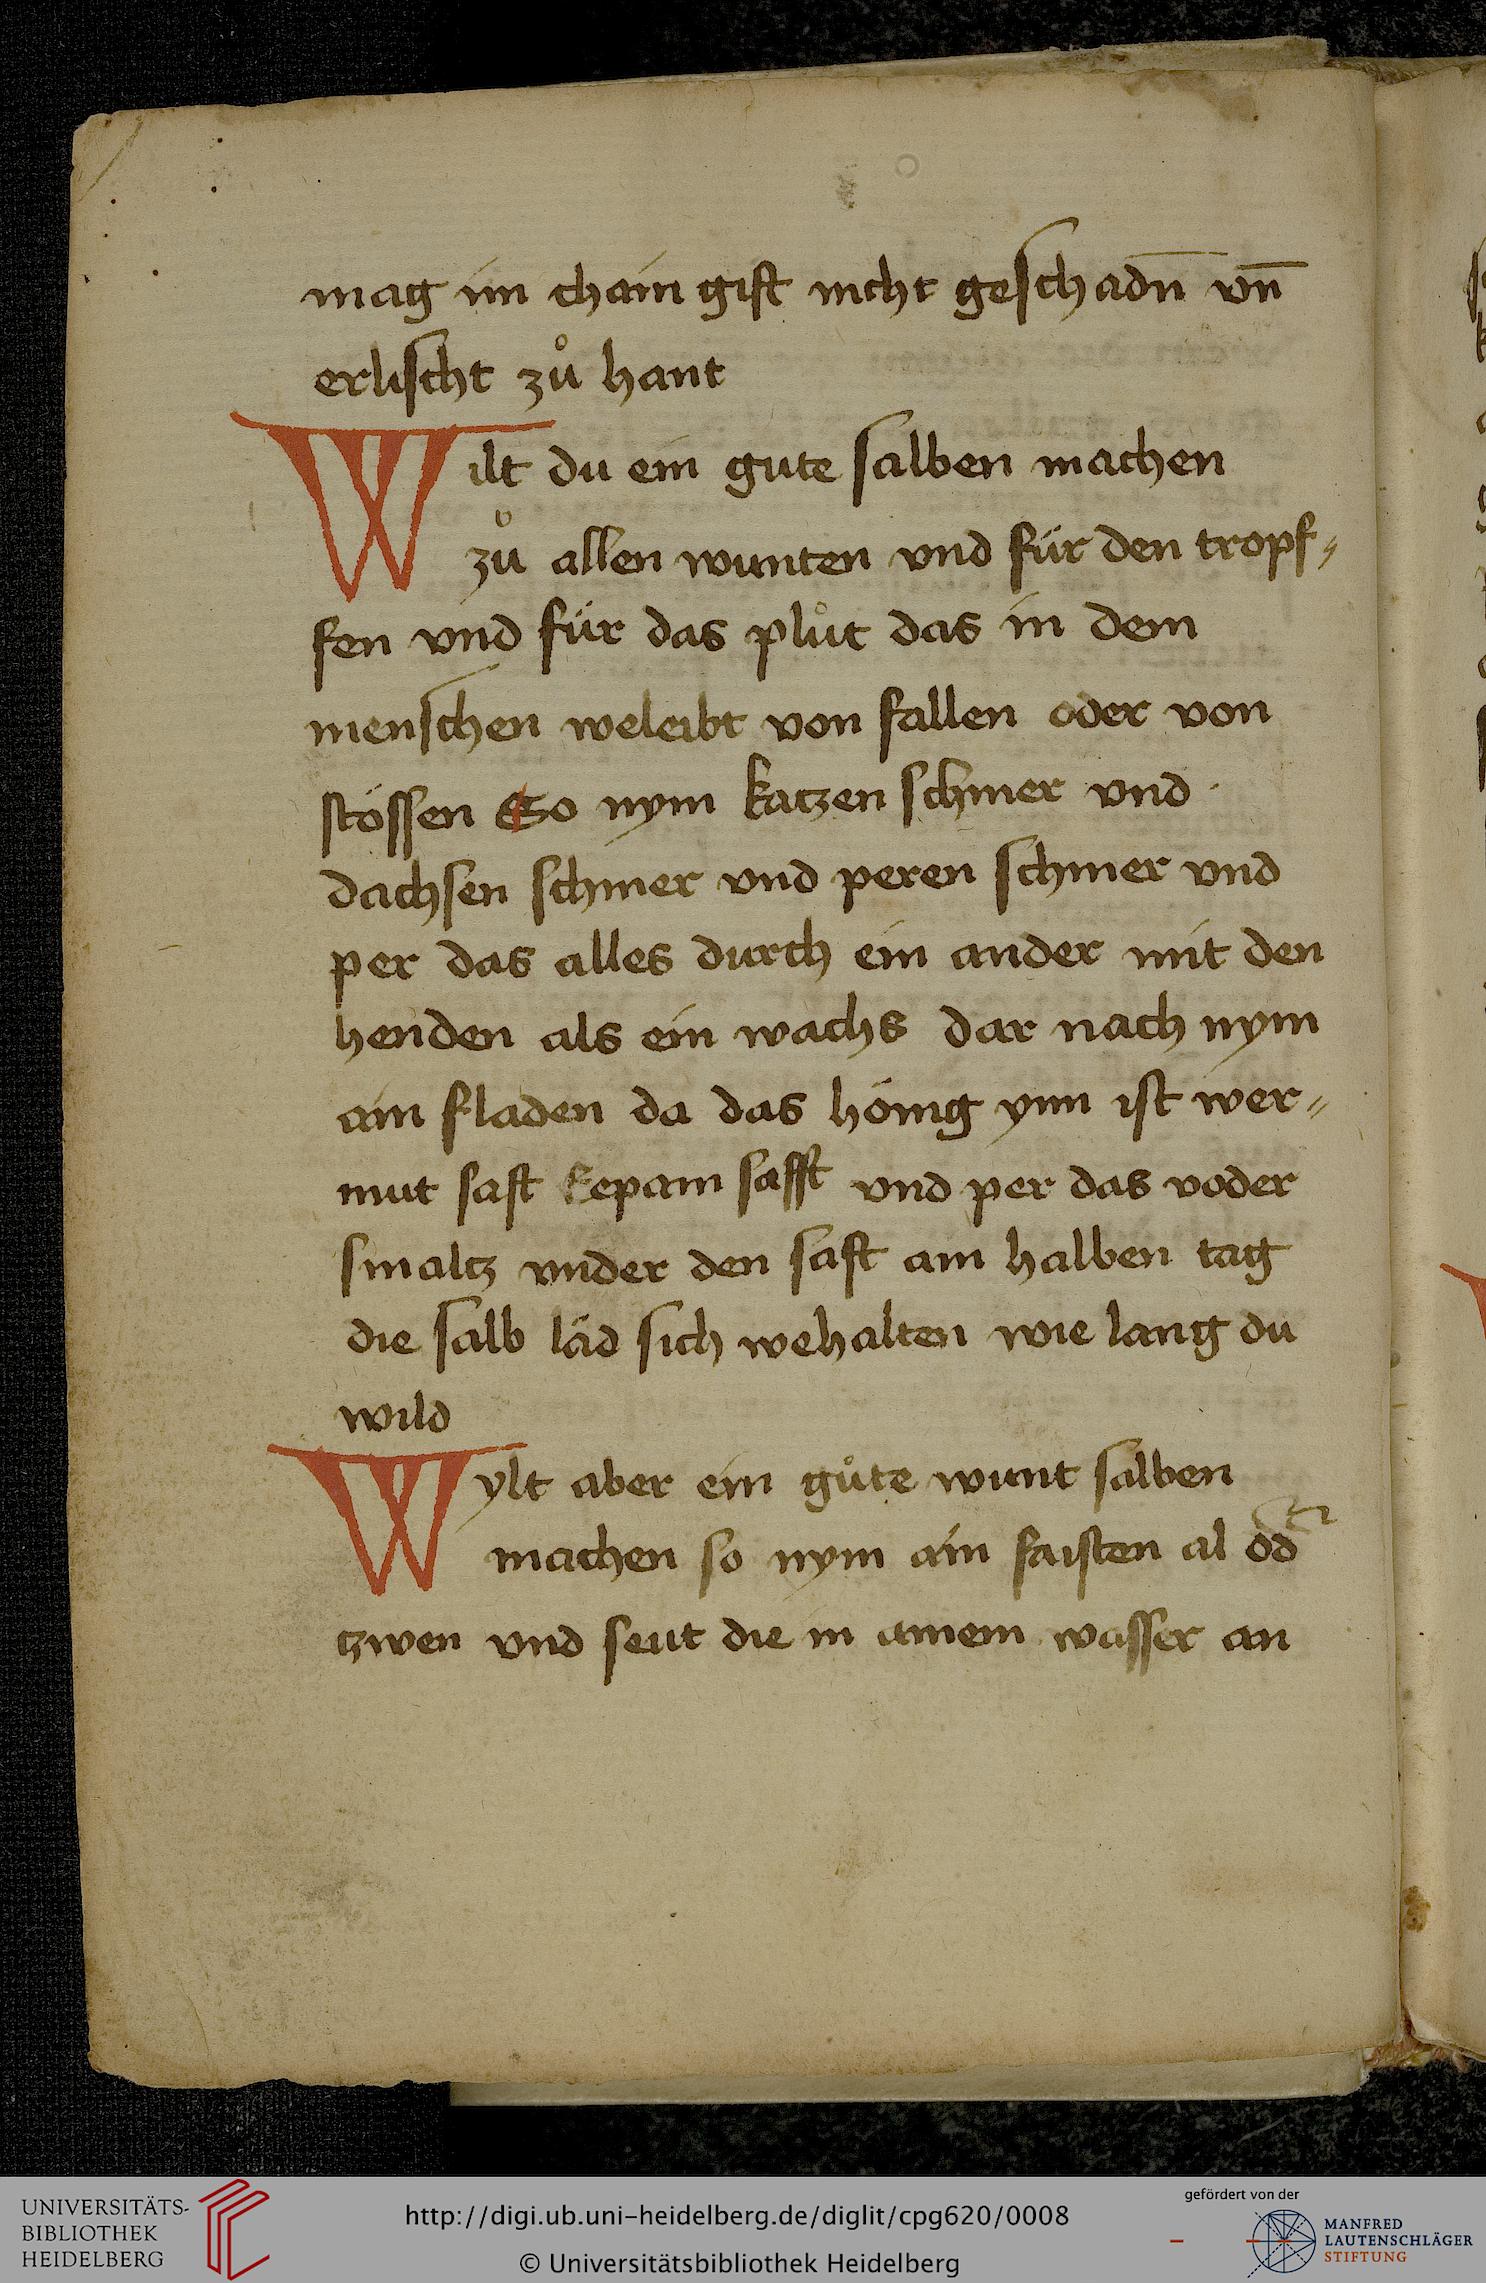 mag im chain gift nicht geschadn̄ vn̄
erlischt zů hant
Wilt du ein gute salben machen
zů allen wunten vnd für den tropf⸗
fen vnd für das plůt das in dem
menschen weleibt von fallen oder von
stössen So nym katzen schmer vnd
dachsen schmer vnd peren schmer vnd
per das alles durch ein ander mit den
henden als ein wachs dar nach nym
ain fladen da das hönig ynn ist wer⸗
mut saft Eepam safft vnd per das voder
smaltz vnder den saft am halben tag
die salb läd sich wehalten wie lang du
wild
Wylt aber ein gůte wunt salben
machen so nym ain faisten al od̄
tzwen vnd seut die in ainem wasser an
UNIVERSITÄTS-
BIBLIOTHEK
HEIDELBERG
http://digi.ub.uni-heidelberg.de/diglit/cpg620/0008
© Universitätsbibliothek Heidelberg
gefördert von der
MANFRED
LAUTENSCHLÄGER
STIFTUNG